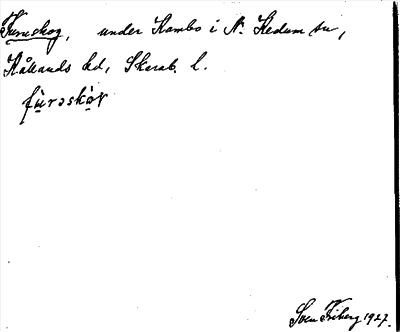 Furuskog, under Kambo i N. Kedum sn,
Kållands hd, Skarab. l.
fu̠rəskò̠γ
Sven Friberg 1927.